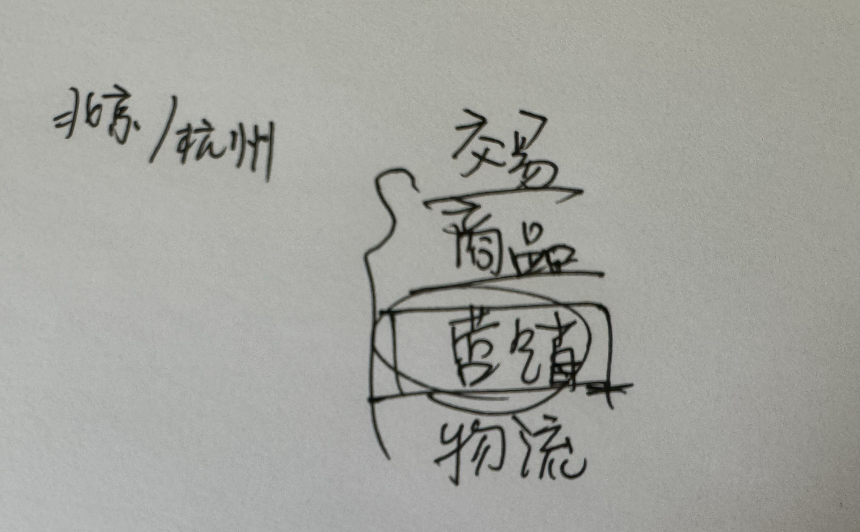 北京/杭州
交易
商品
营销
物流